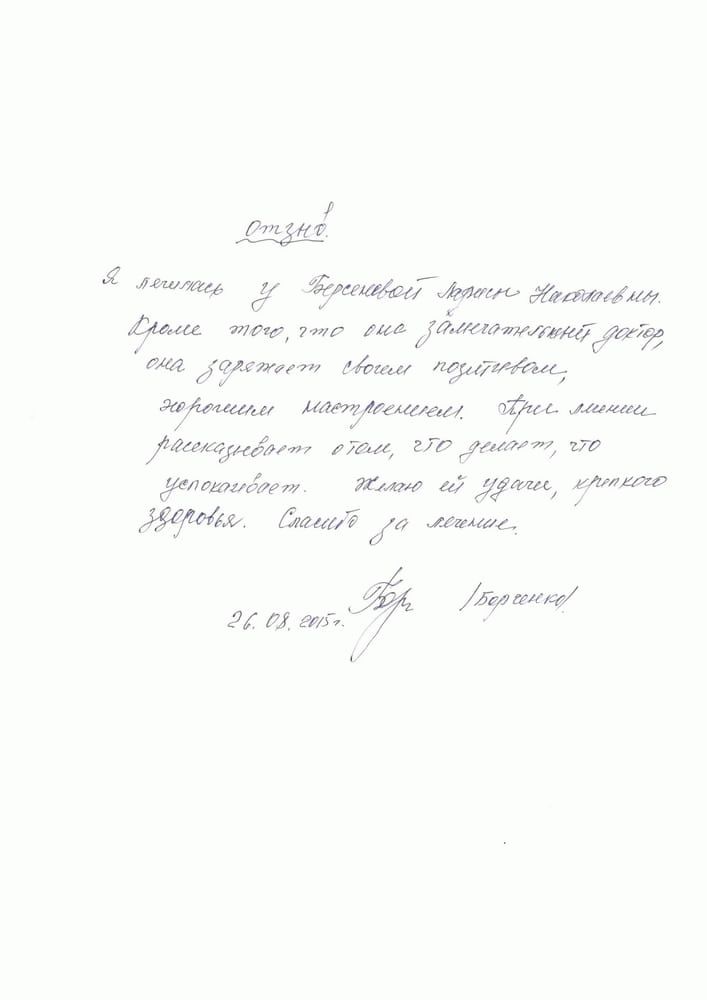 Отзыв.
Я лечилась у Берсеневой Ларисы Николаевны.
Кроме того, что она замечательный доктор,
она заряжает своим позитивом,
хорошим настроением. При лечении
рассказывает о том, что делает, что
успокаивает. Желаю ей удачи, крепкого
здоровья. Спасибо за лечение.
26.08.2015г. /Борченко/